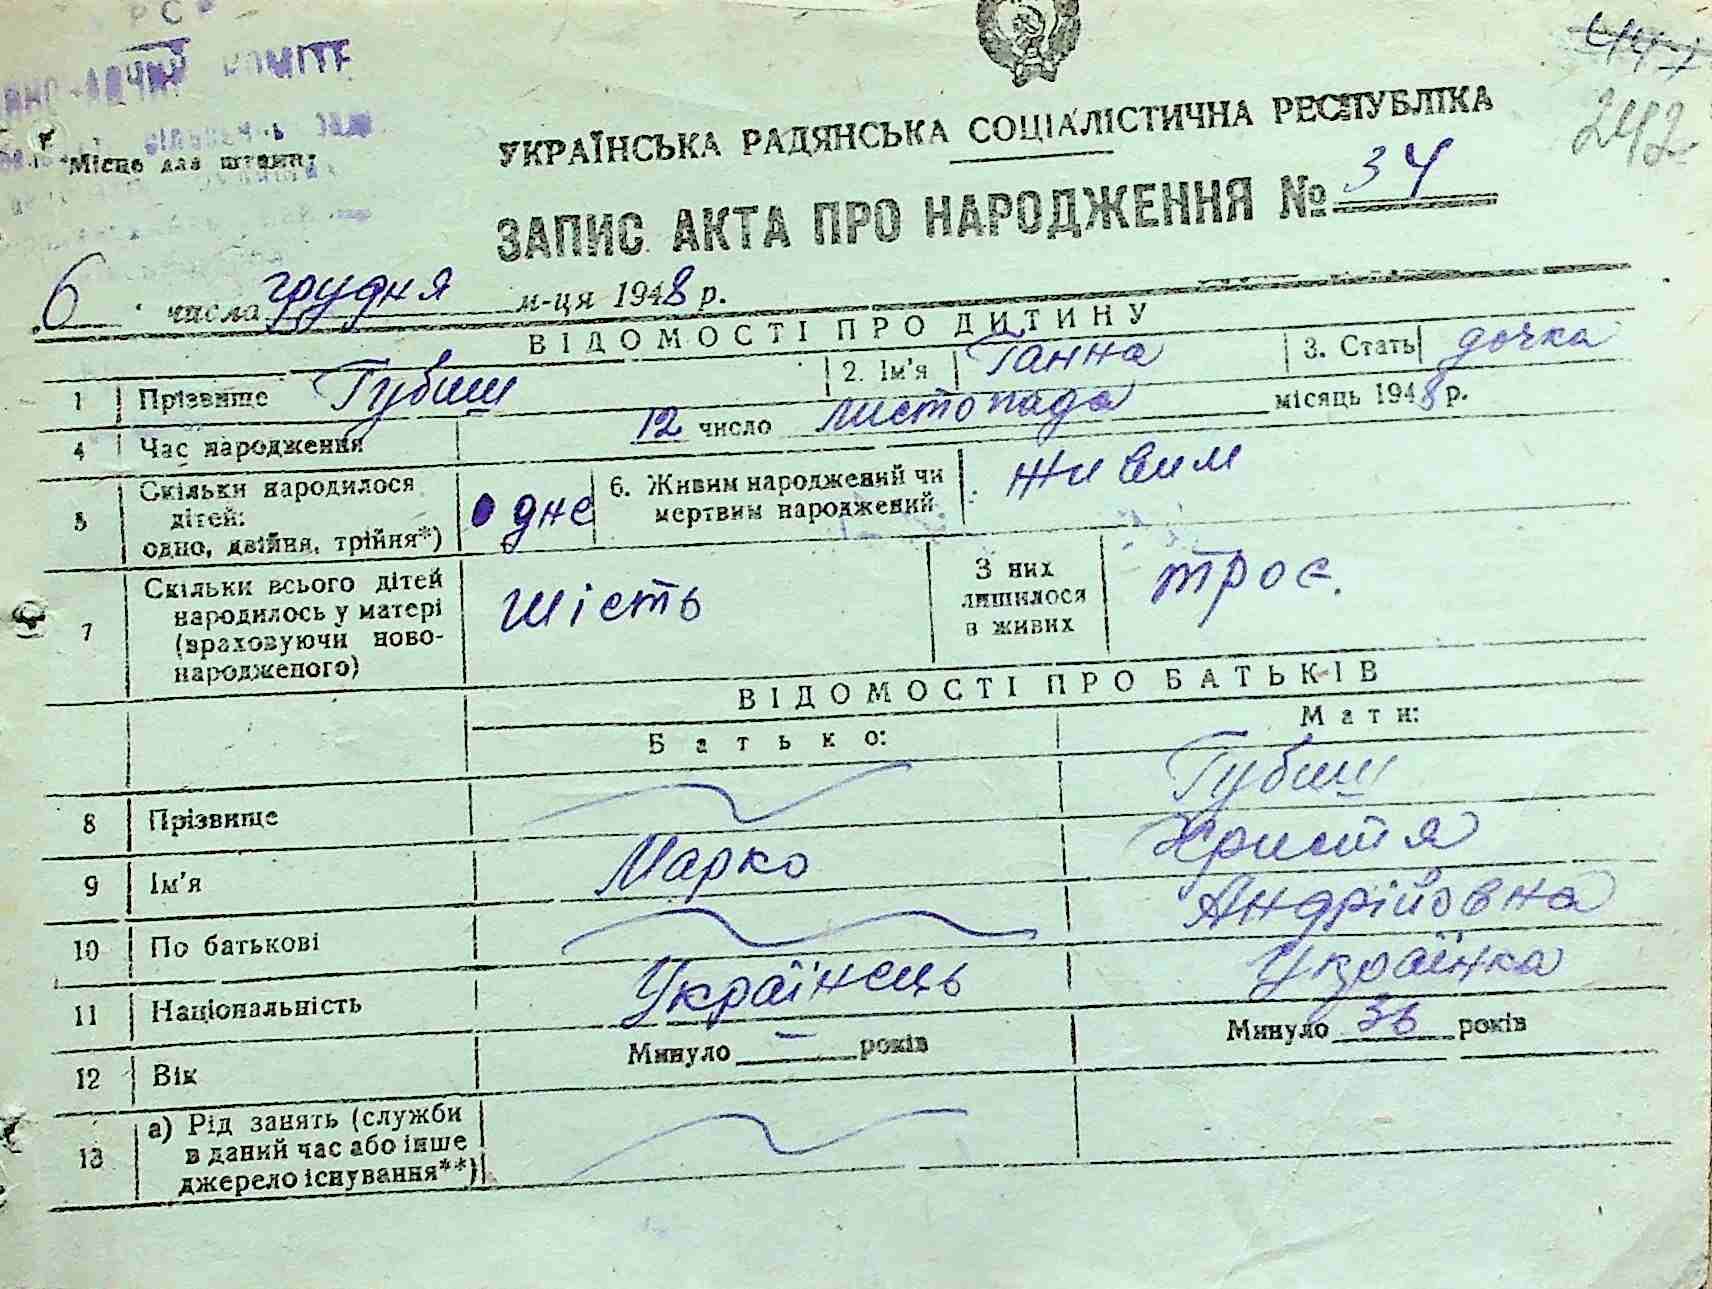 КОМІТЕ
Місце для штампу
447
242
УКРАЇНСЬКА РАДЯНСЬКА СОЦІАЛІСТИЧНА РЕСПУБЛІКА
ЗАПИС АКТА ПРО НАРОДЖЕННЯ № 34
6 числа грудня м-ця 1948 р.
ВІДОМОСТІ ПРО ДИТИНУ
1 Прізвище Губиш 2. Ім'я Ганна 3. Стать дочка
4 Час народження 12 число листопада місяць 1948 р.
5 Скільки народилося дітей: одно, двійня, трійня*) одне 6. Живим народжений чи мертвим народжений живим
7 Скільки всього дітей народилось у матері (враховуючи новонародженого) шість З них лишилося в живих троє.
ВІДОМОСТІ ПРО БАТЬКІВ
Батько: Мати:
8 Прізвище Губиш
9 Ім'я Марко Христя
10 По батькові Андрійовна
11 Національність Українець Українка
12 Вік Минуло — років Минуло 36 років
13 а) Рід занять (служби в даний час або інше джерело існування**)